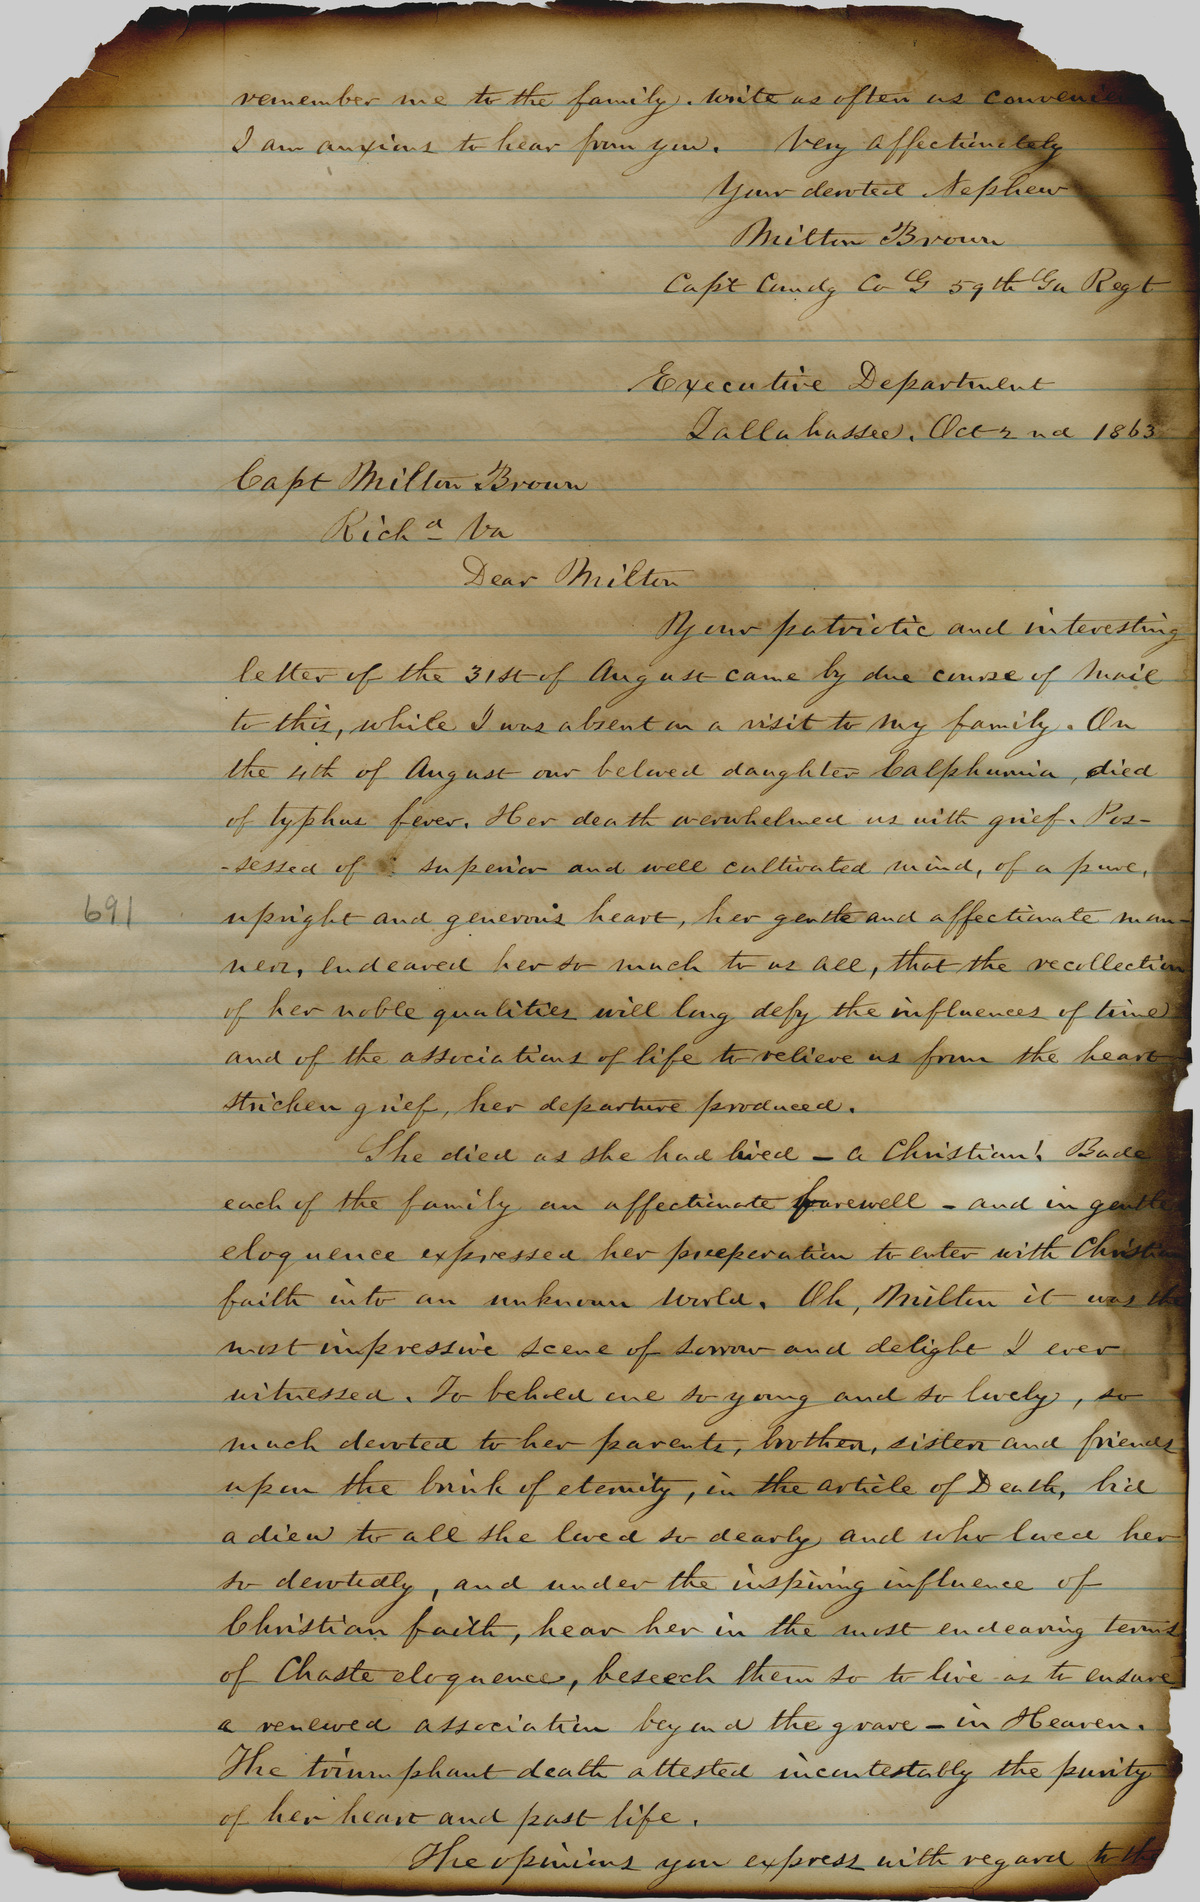 remember me to the family. Write as often as
I am anxious to hear from you. Very Affectionately
Your devoted Nephew
Milton Brown
Capt Comdg Co G 59th Ga Regt
Executive Department
Tallahassee. Oct 2nd 1863
Capt Milton Brown
Richd Va
Dear Milton
Your patriotic and interesting
letter of the 31st of August came by due course of Mail
to this, while I was absent on a visit to my family. On
the 4th of August our beloved daughter Calphurnia, died
of typhus fever. Her death overwhelmed us with grief. Pos-
-sessed of superior and well cultivated mind, of a pure,
691
upright and generous heart, her gentle and affectionate man-
ners, endeared her so much to us all, that the recollection
of her noble qualities will long defy the influences of time
and of the associations of life to relieve us from the heart
stricken grief, her departure produced.
She died as she had lived - a Christian! Bade
each of the family an affectionate farewell - and in gentle
eloquence expressed her preeperation to enter with Christian
faith into an unknown World. Oh, Milton it was the
most impressive scene of sorrow and delight I ever
witnessed. To behold one so young and so lovely, so
much devoted to her parents, brothers, sisters and friends
upon the brink of eternity, in the article of Death, bid
adieu to all she loved so dearly and who loved her
so devotedly, and under the inspiring influence of
Christian faith, hear her in the most endearing terms
of Chaste eloquence, beseech them so to live as to ensure
a renewed association beyond the grave - in Heaven.
The triumphant death attested incontestably the purity
of her heart and past life.
The opinions you express with regard to the